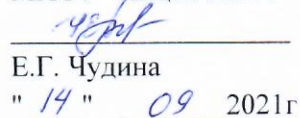 Е.Г. Чудина
" 14 " 09 2021г